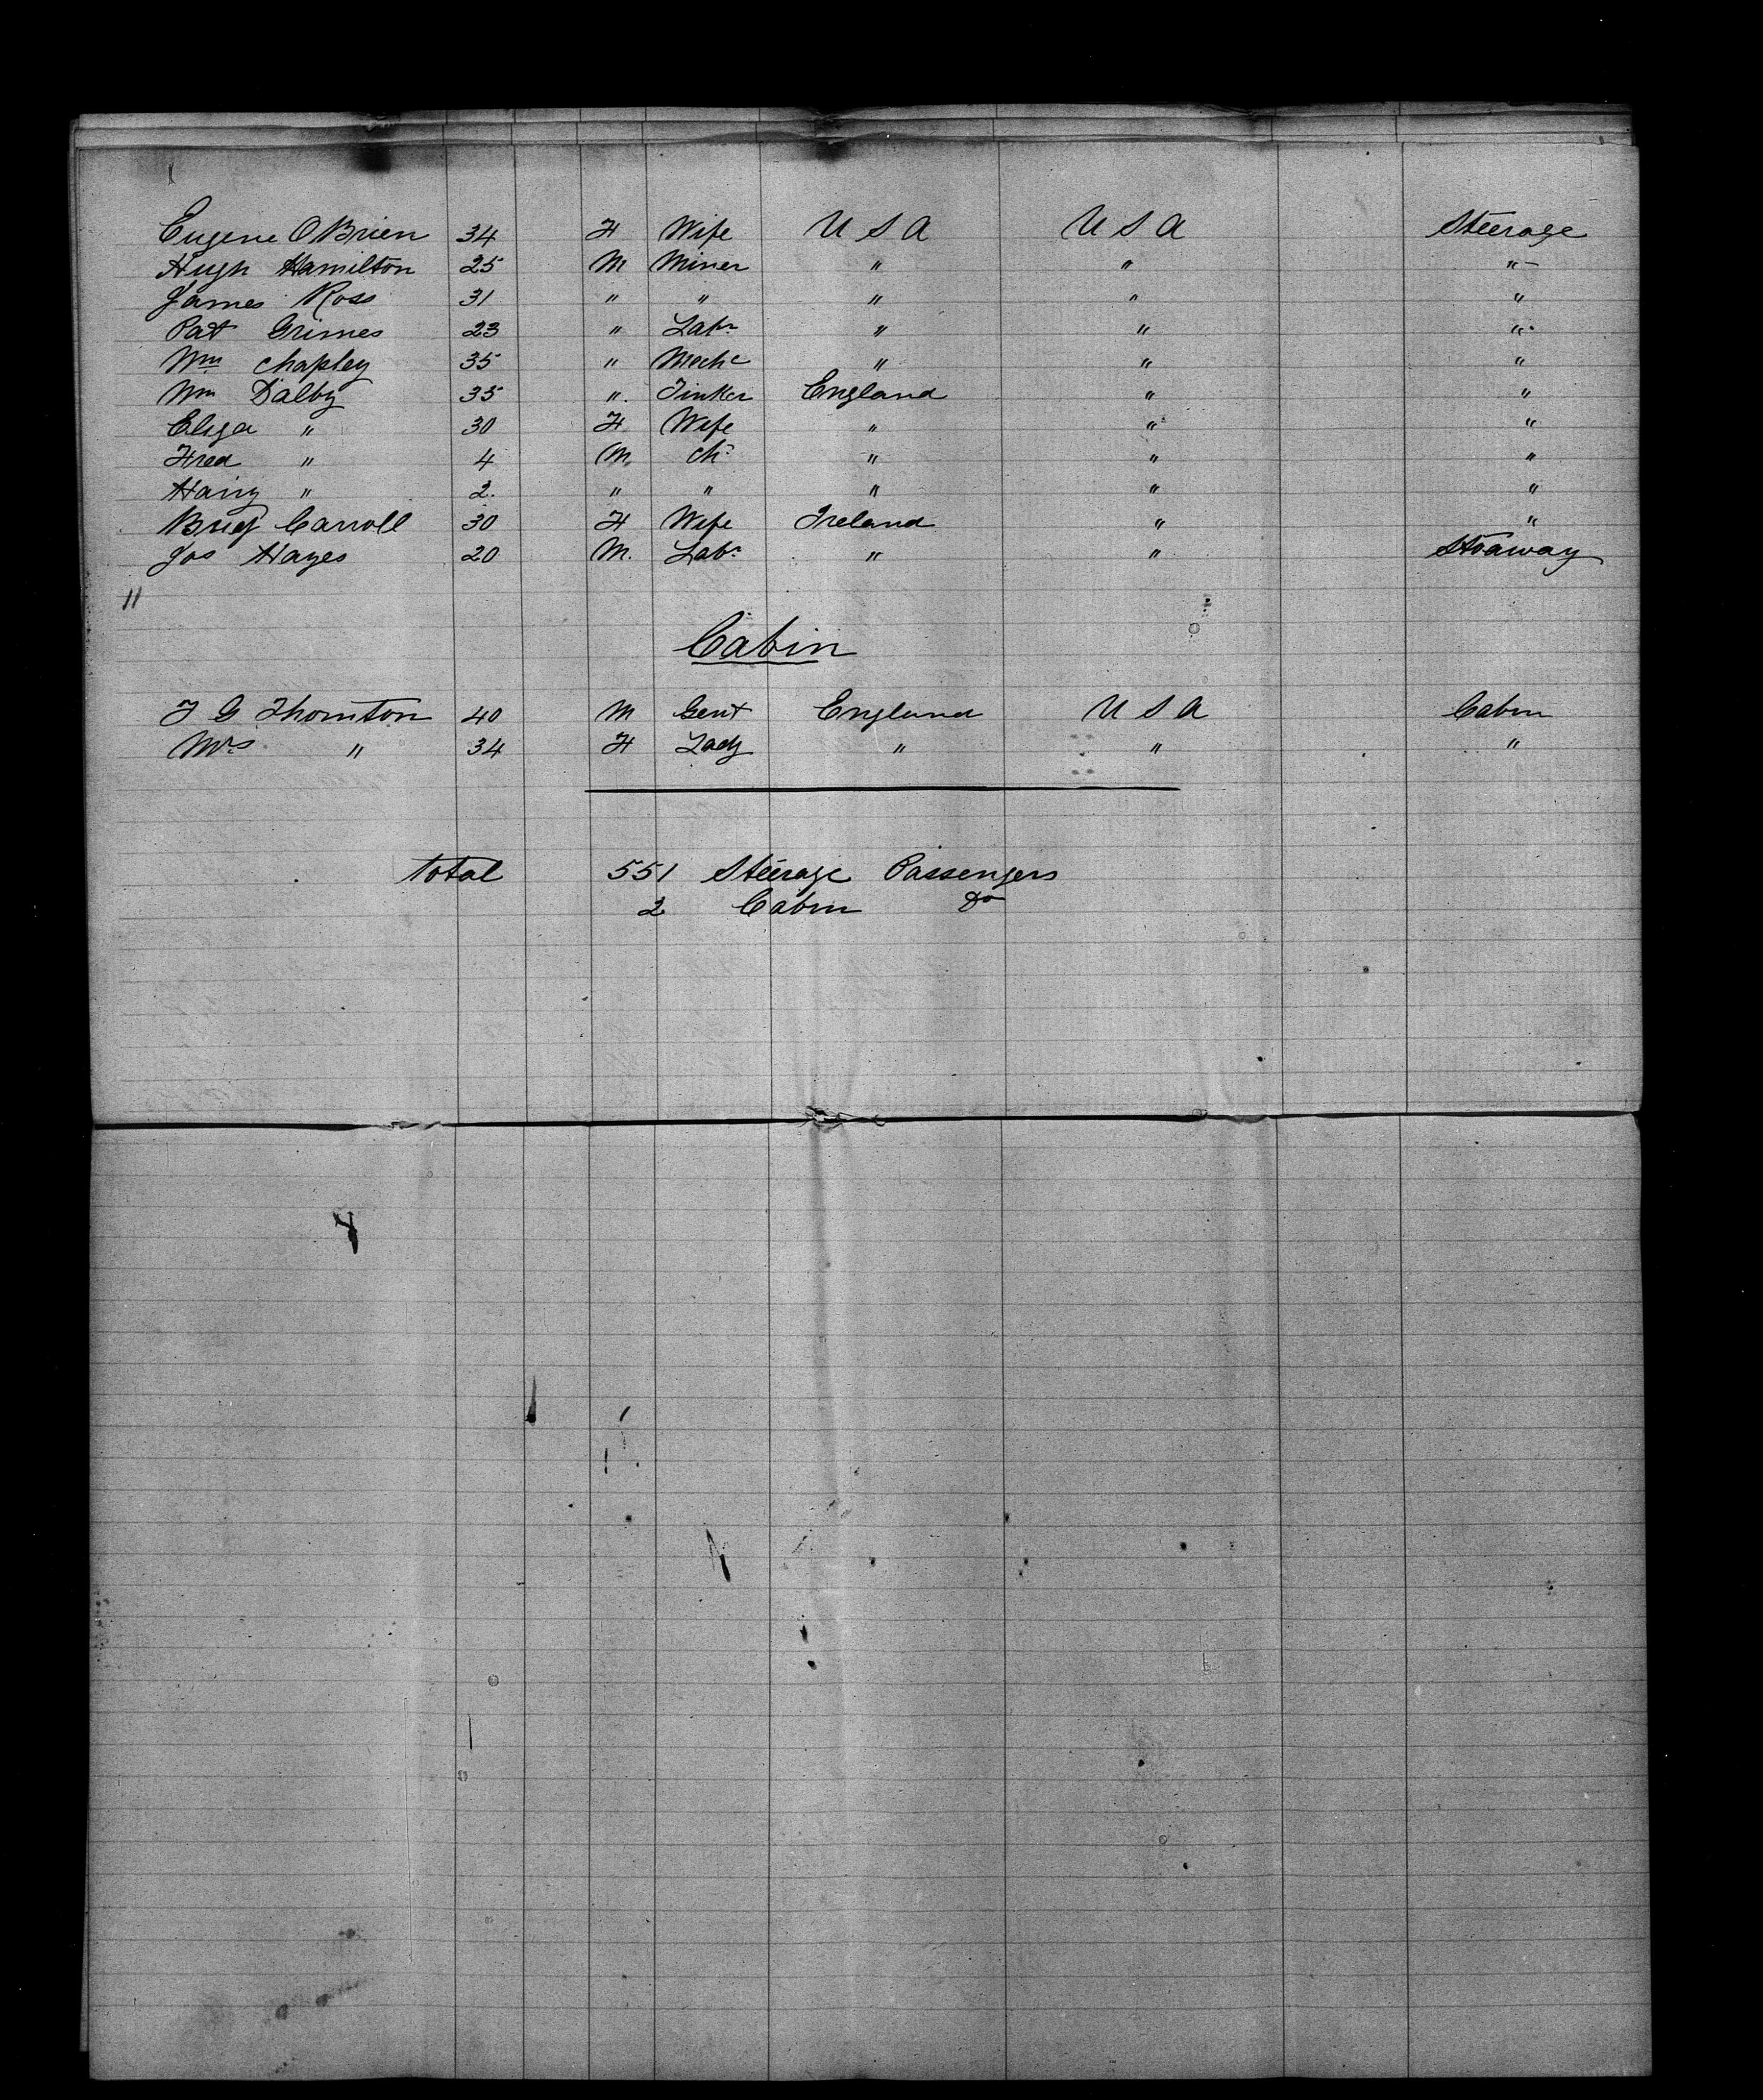 Eugene O'Brien 34 F Wife U S A U S A Steerage
Hugh Hamilton 25 M Miner " " "
James Ross 31 " " " " "
Pat Grimes 23 " Labr " " "
Wm Chapley 35 " Mechc " " "
Wm Dalby 35 " Tinker England " "
Eliza " 30 F Wife " " "
Fred " 4 M Ch " " "
Harry " 2 " " " " "
Bridg Carroll 30 F Wife Ireland " "
Jos Hayes 20 M. Labr " " Stoaway
11
Cabin
T G Thornton 40 M Gent England U S A Cabin
Mrs " 34 F Lady " " "
Total 551 Steerage Passengers
2 Cabin Do